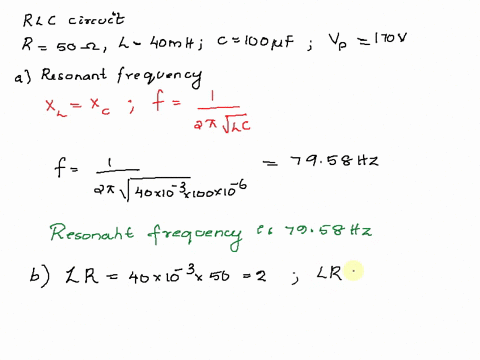 RLC circuit
R = 50 Ω, L = 40mH ; C = 100μF ; Vp = 170V
a) Resonant frequency
X_L = X_C ; f = 1 / 2π√LC
f = 1 / 2π√40×10^-3×100×10^-6 = 79.58 Hz
Resonant frequency is 79.58 Hz
b) LR = 40×10^-3 × 50 = 2 ; LR